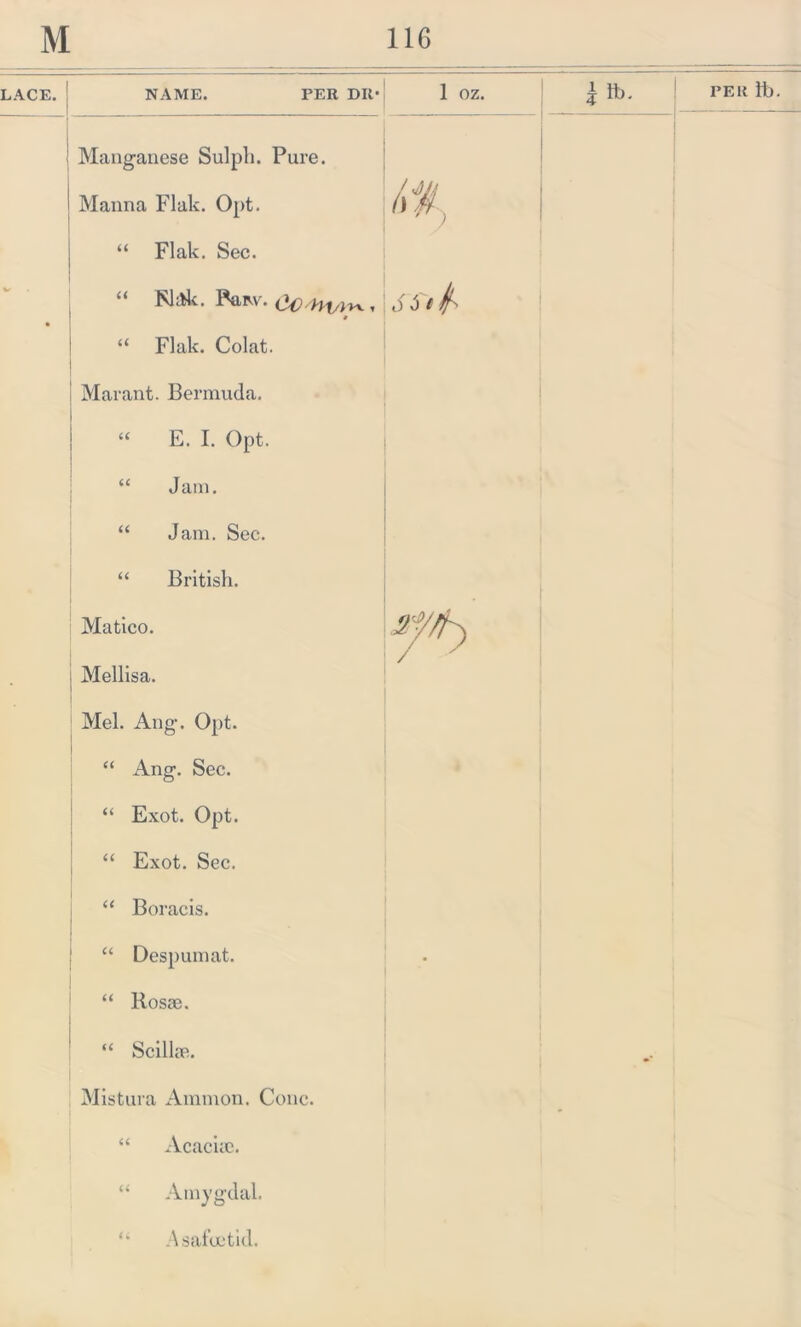 M 116
LACE. NAME. PER DR. 1 OZ. ¼ lb. PER lb.
Manganese Sulph. Pure.
Manna Flak. Opt.
“ Flak. Sec.
“ Flak. Parv. Comm,
“ Flak. Colat.
Marant. Bermuda.
“ E. I. Opt.
“ Jam.
“ Jam. Sec.
“ British.
Matico.
Mellisa.
Mel. Ang. Opt.
“ Ang. Sec.
“ Exot. Opt.
“ Exot. Sec.
“ Boracis.
“ Despumat.
“ Rosæ.
“ Scillæ.
Mistura Ammon. Conc.
“ Acaciæ.
“ Amygdal.
“ Asafœtid.